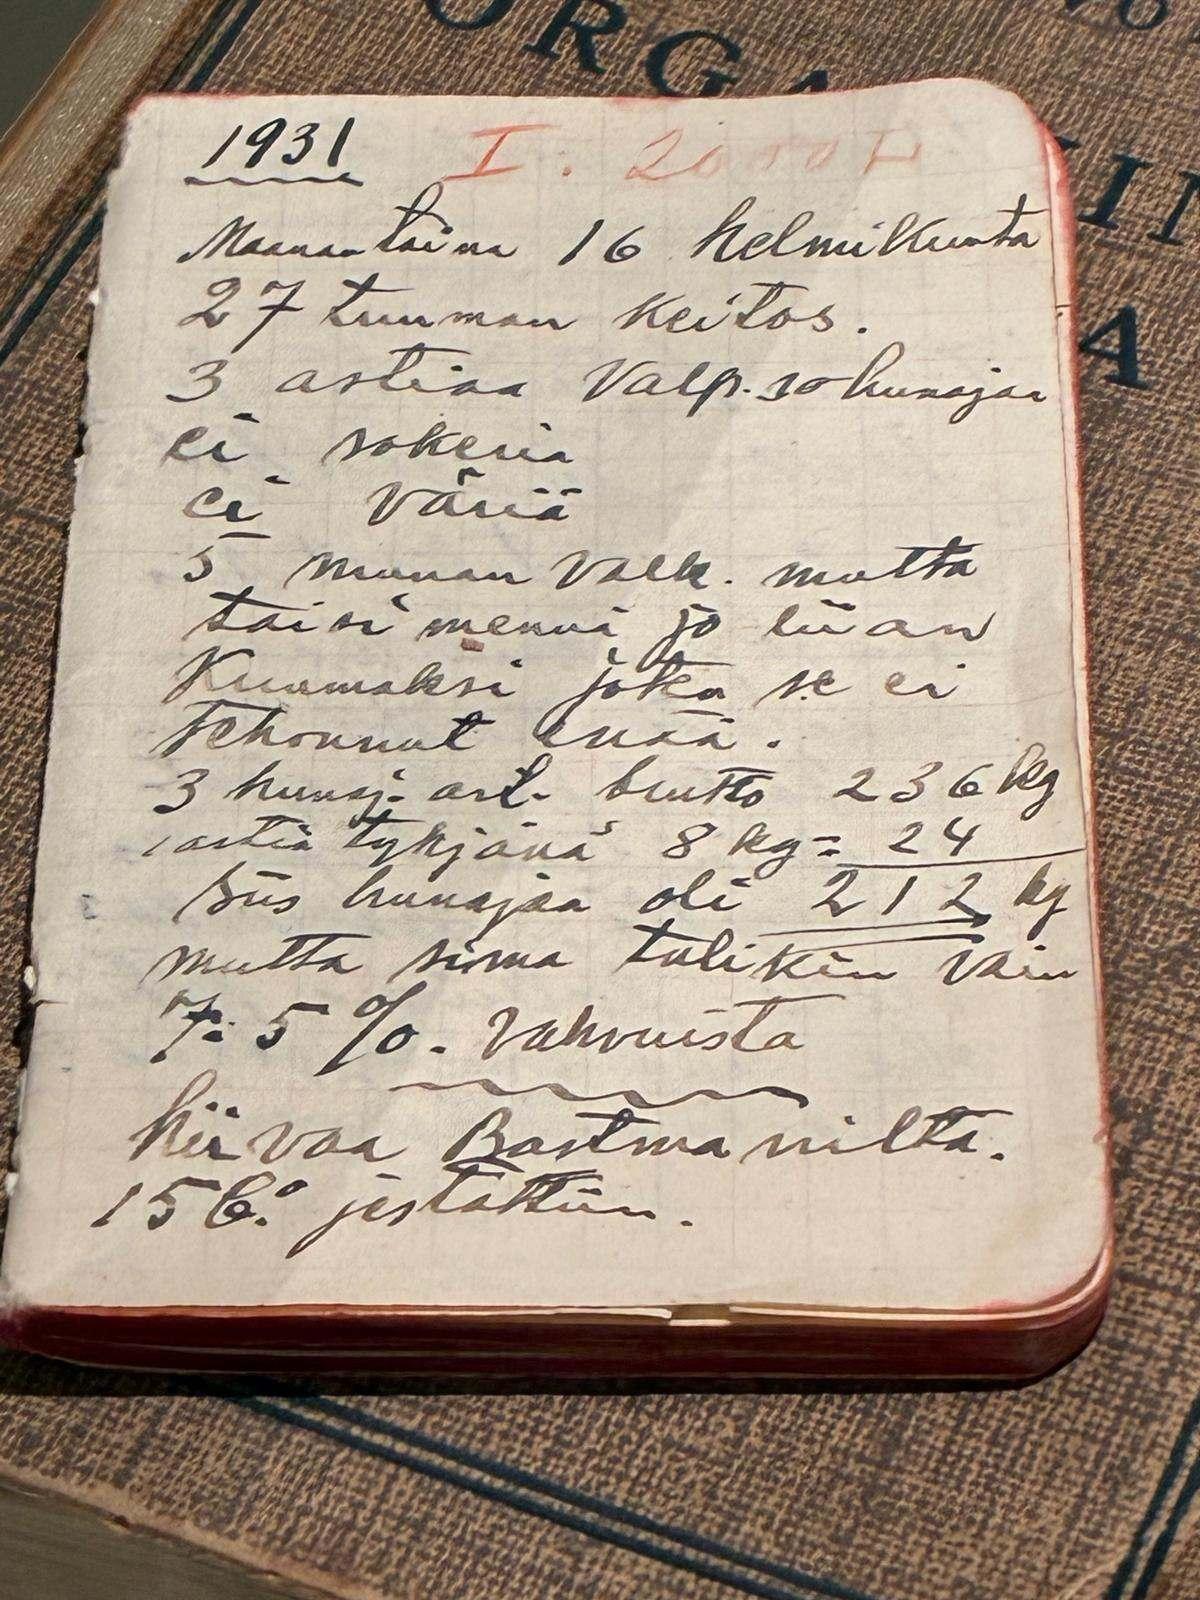 ORGA
1931 I.
Maanantaina 16 helmikuuta
27 tuuman keitos.
3 astiaa Valp.so hunajaa
ei sokeria
ei väriä
5 munan valk. mutta
taisi mennä jo liian
Kuumaksi joten se ei
tehonnut enää.
3 hunaj. ast. brutto 236 kg
1 astia tyhjänä 8 kg = 24
Siis hunajaa oli 212 kg
mutta sima tulikin vain
7.5 %. vahvuista
hiivaa Bastmanilta.
15 C.° jestattiin.
A